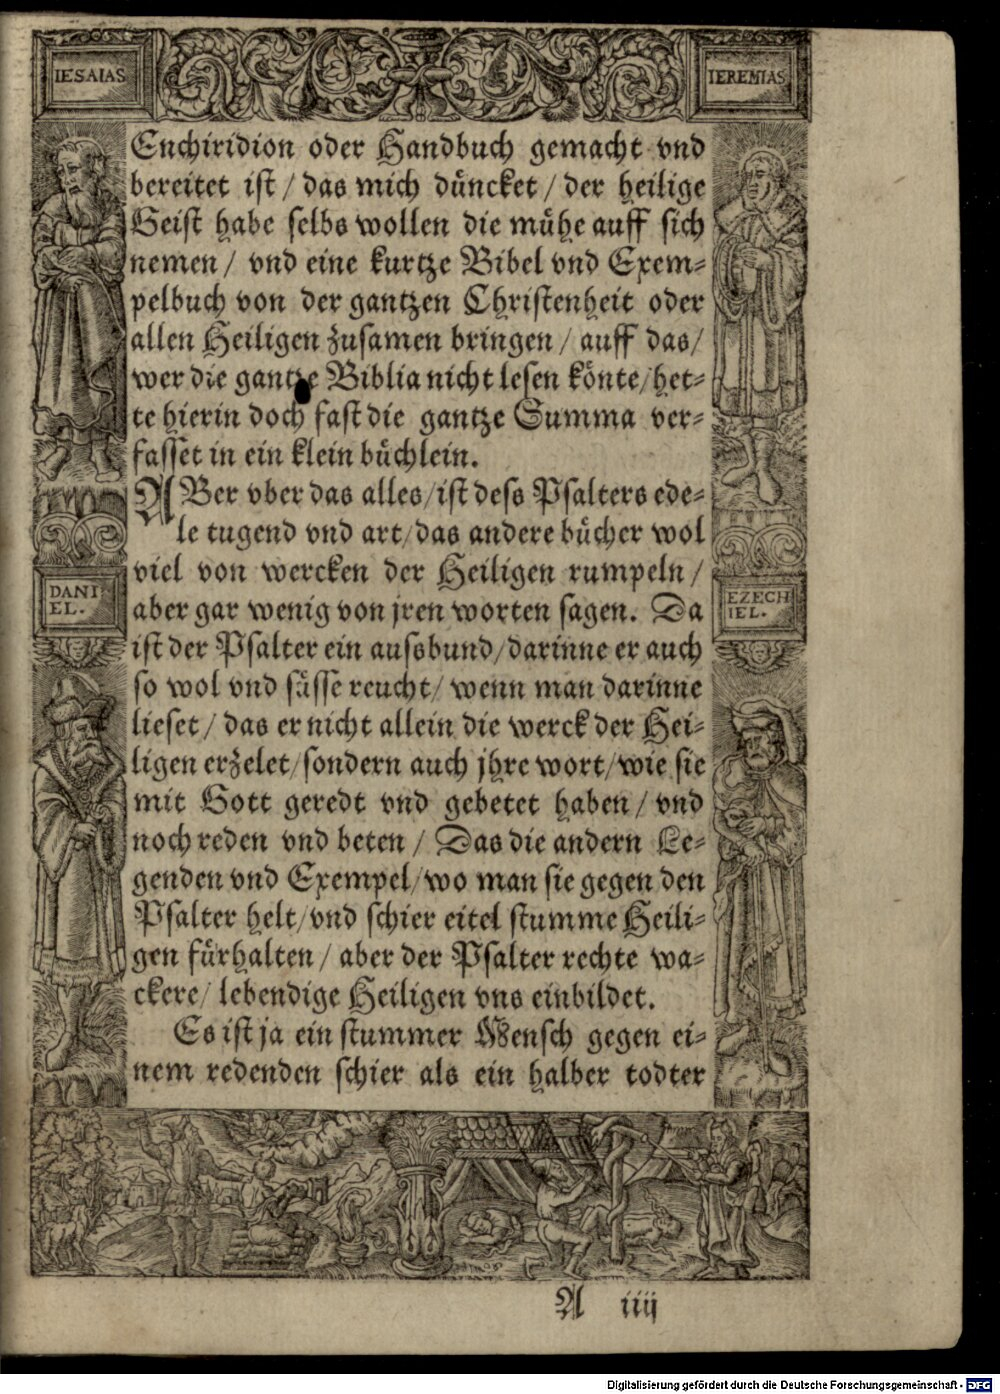 IESAIAS
IEREMIAS
Enchiridion oder Handbuch gemacht vnd
bereitet ist / das mich düncket / der heilige
Geist habe selbs wollen die mühe auff sich
nemen / vnd eine kurtze Bibel vnd Exem-
pelbuch von der gantzen Christenheit oder
allen Heiligen zusamen bringen / auff das /
wer die gantze Biblia nicht lesen könte / het-
te hierin doch fast die gantze Summa ver-
fasset in ein klein büchlein.
ABer vber das alles / ist dess Psalters ede-
le tugend vnd art / das andere bücher wol
viel von wercken der Heiligen rumpeln /
aber gar wenig von jren worten sagen. Da
ist der Psalter ein aussbund / darinne er auch
so wol vnd süsse reucht / wenn man darinne
lieset / das er nicht allein die werck der Hei-
ligen erzelet / sondern auch jhre wort / wie sie
mit Gott geredt vnd gebetet haben / vnd
noch reden vnd beten / Das die andern Le-
genden vnd Exempel / wo man sie gegen den
Psalter helt / vnd schier eitel stumme Heili-
gen fürhalten / aber der Psalter rechte wa-
ckere / lebendige Heiligen vns einbildet.
Es ist ja ein stummer Mensch gegen ei-
nem redenden schier als ein halber todter
DANI
EL.
EZECH
IEL.
A iiij
Digitalisierung gefördert durch die Deutsche Forschungsgemeinschaft - DFG